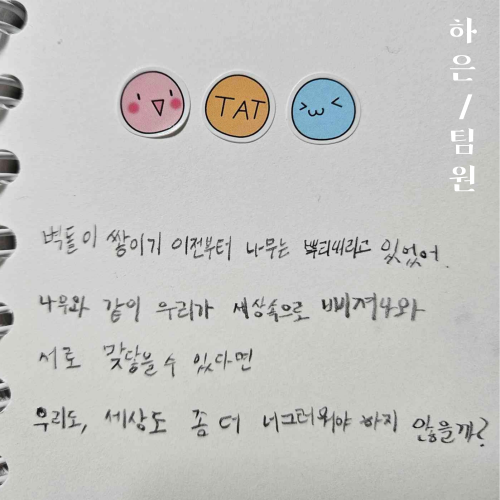 하은/팀원
TAT
벽들이 쌓이기 이전부터 나무는 뿌리내리고 있었어.
나무와 같이 우리가 세상속으로 삐져나와
서로 맞닿을 수 있다면
우리도, 세상도 좀 더 너그러워야 하지 않을까?